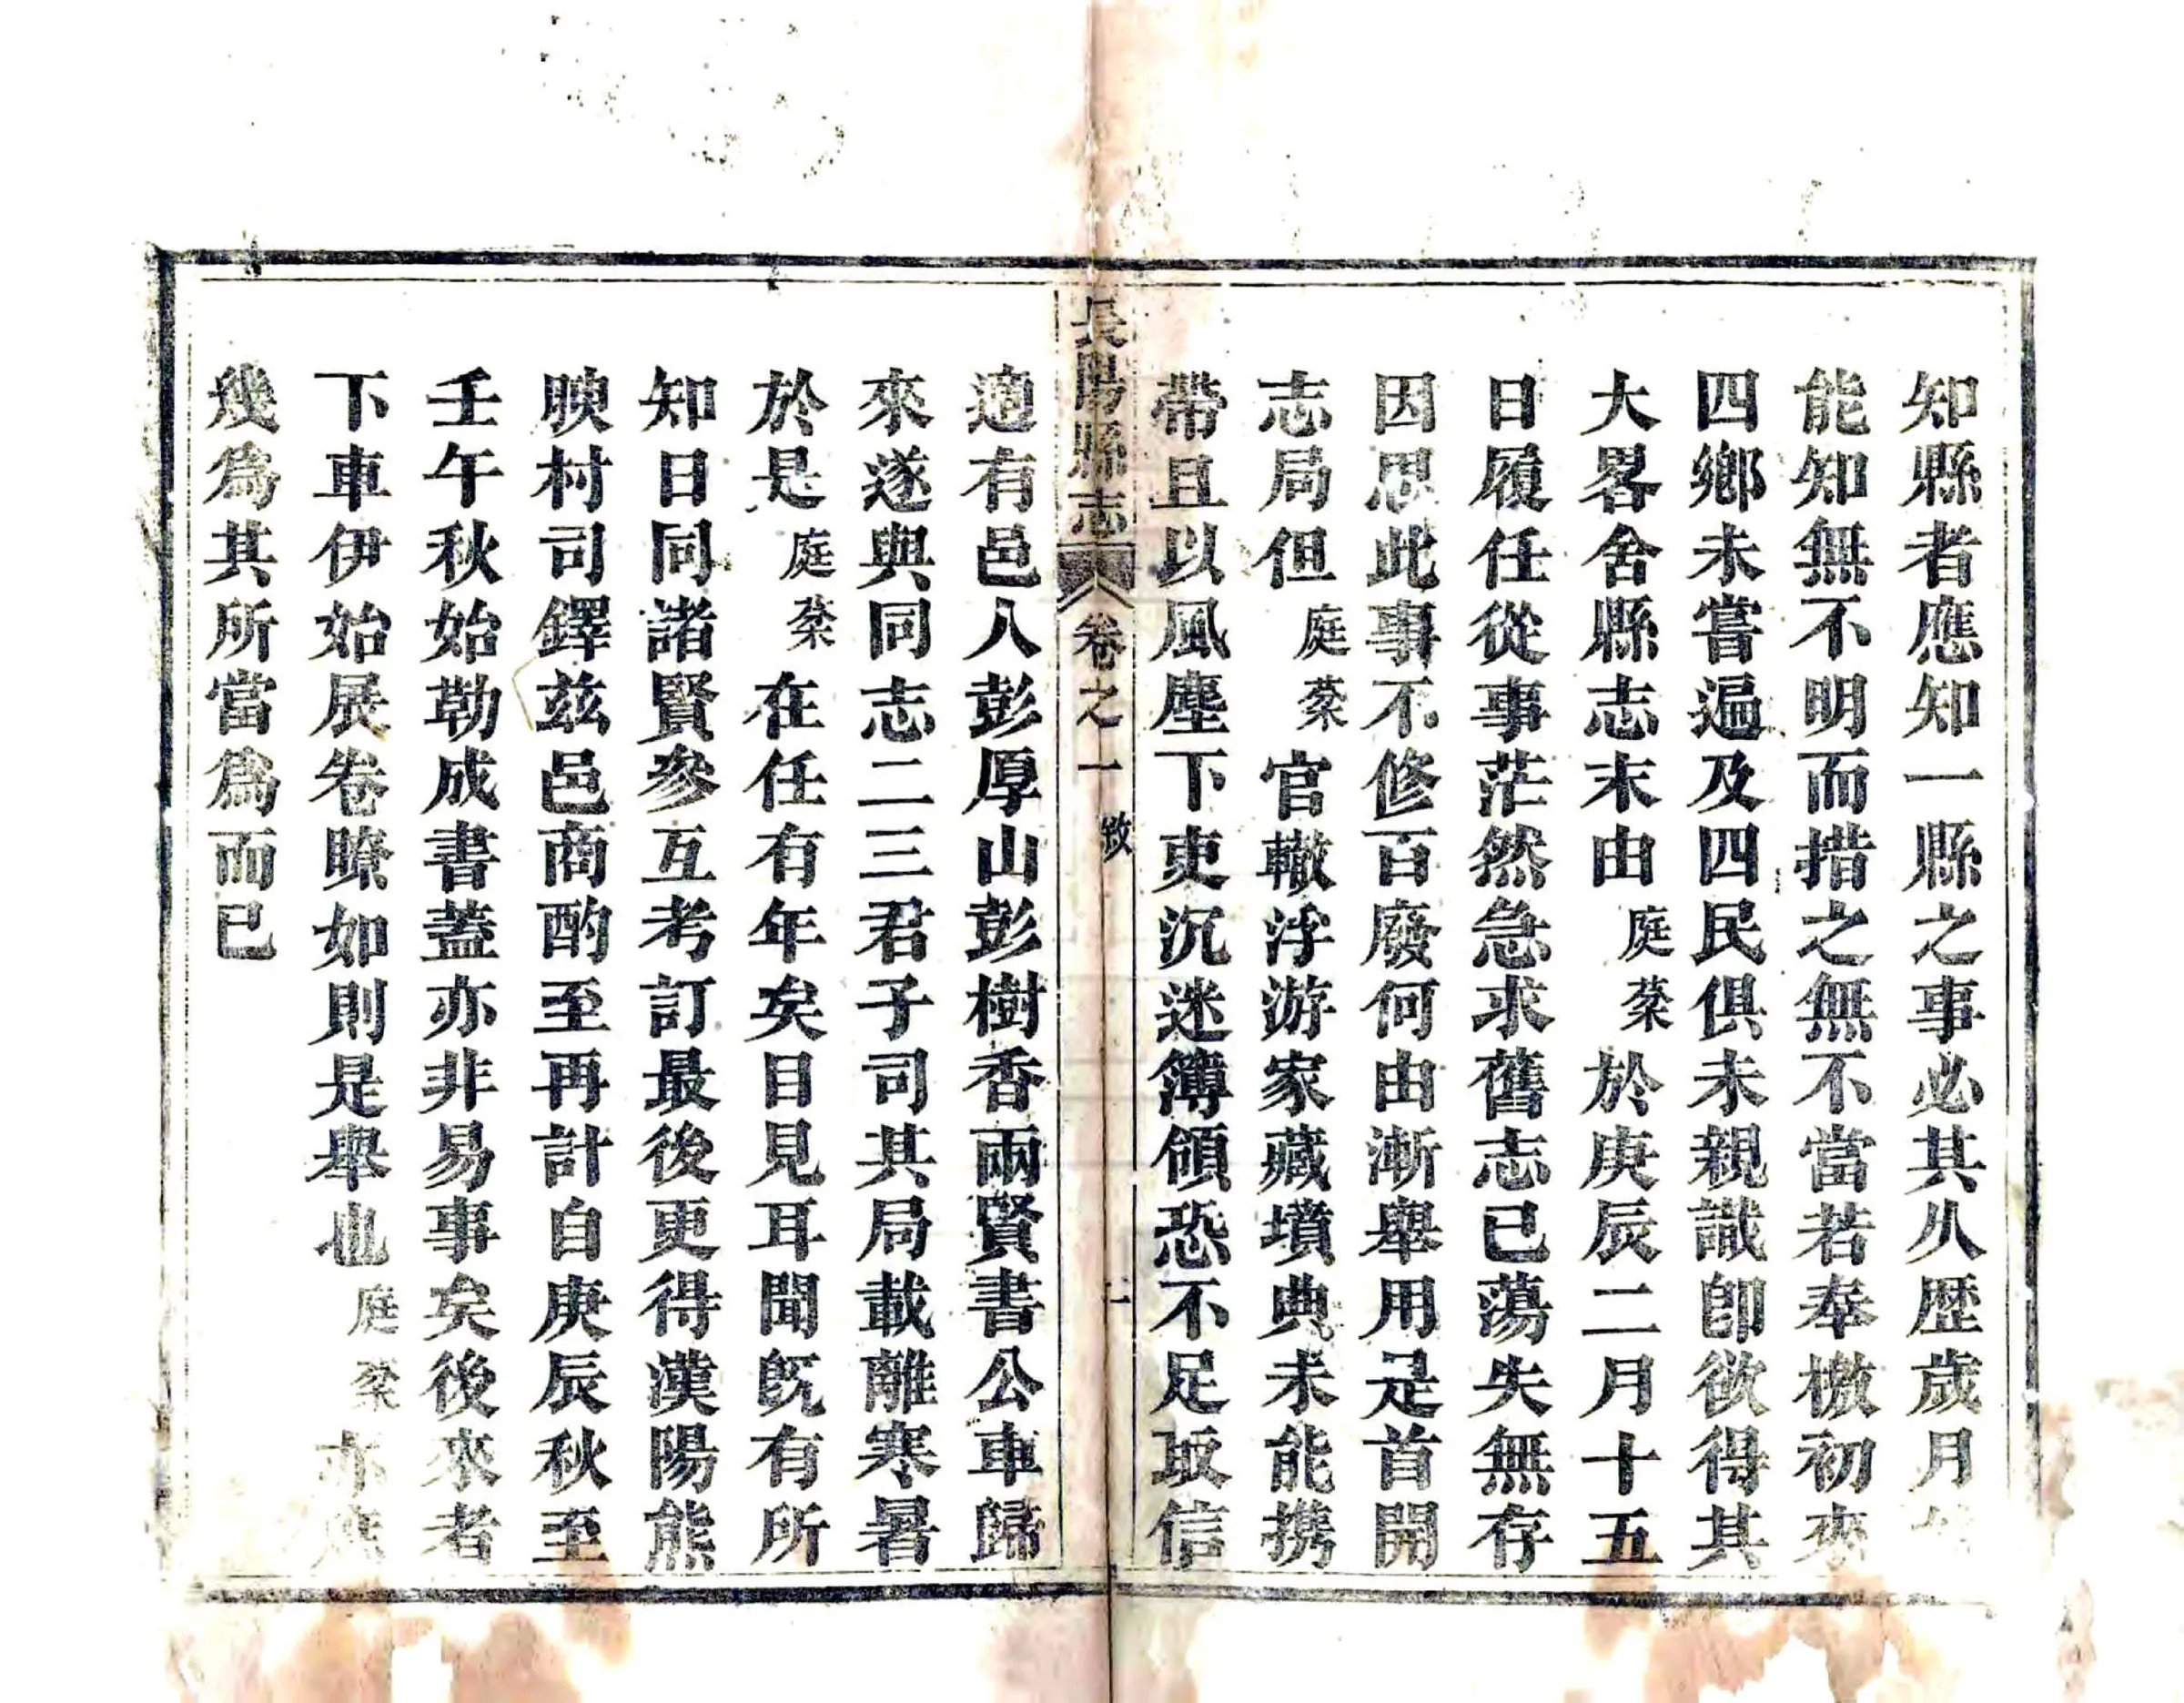 知縣者應知一縣之事必其久歷歲月
能知無不明而措之無不當若奉檄初來
四鄉未嘗遍及四民俱未親識卽欲得其
大畧舍縣志末由庭棻於庚辰二月十五
日履任從事茫然急求舊志已蕩失無存
因思此事不修百廢何由漸舉用是首開
志局但庭棻官轍浮游家藏墳典未能携
帶且以風塵下吏沉迷簿領恐不足取信
長陽縣志 卷之一 敘 二
適有邑人彭厚山彭樹香兩賢書公車歸
來遂與同志二三君子司其局載離寒暑
於是庭棻在任有年矣目見耳聞旣有所
知日同諸賢參互考訂最後更得漢陽熊
映村司鐸玆邑商酌至再計自庚辰秋至
壬午秋始勒成書蓋亦非易事矣後來者
下車伊始展卷瞭如則是舉也庭棻亦庶
幾爲其所當爲而已